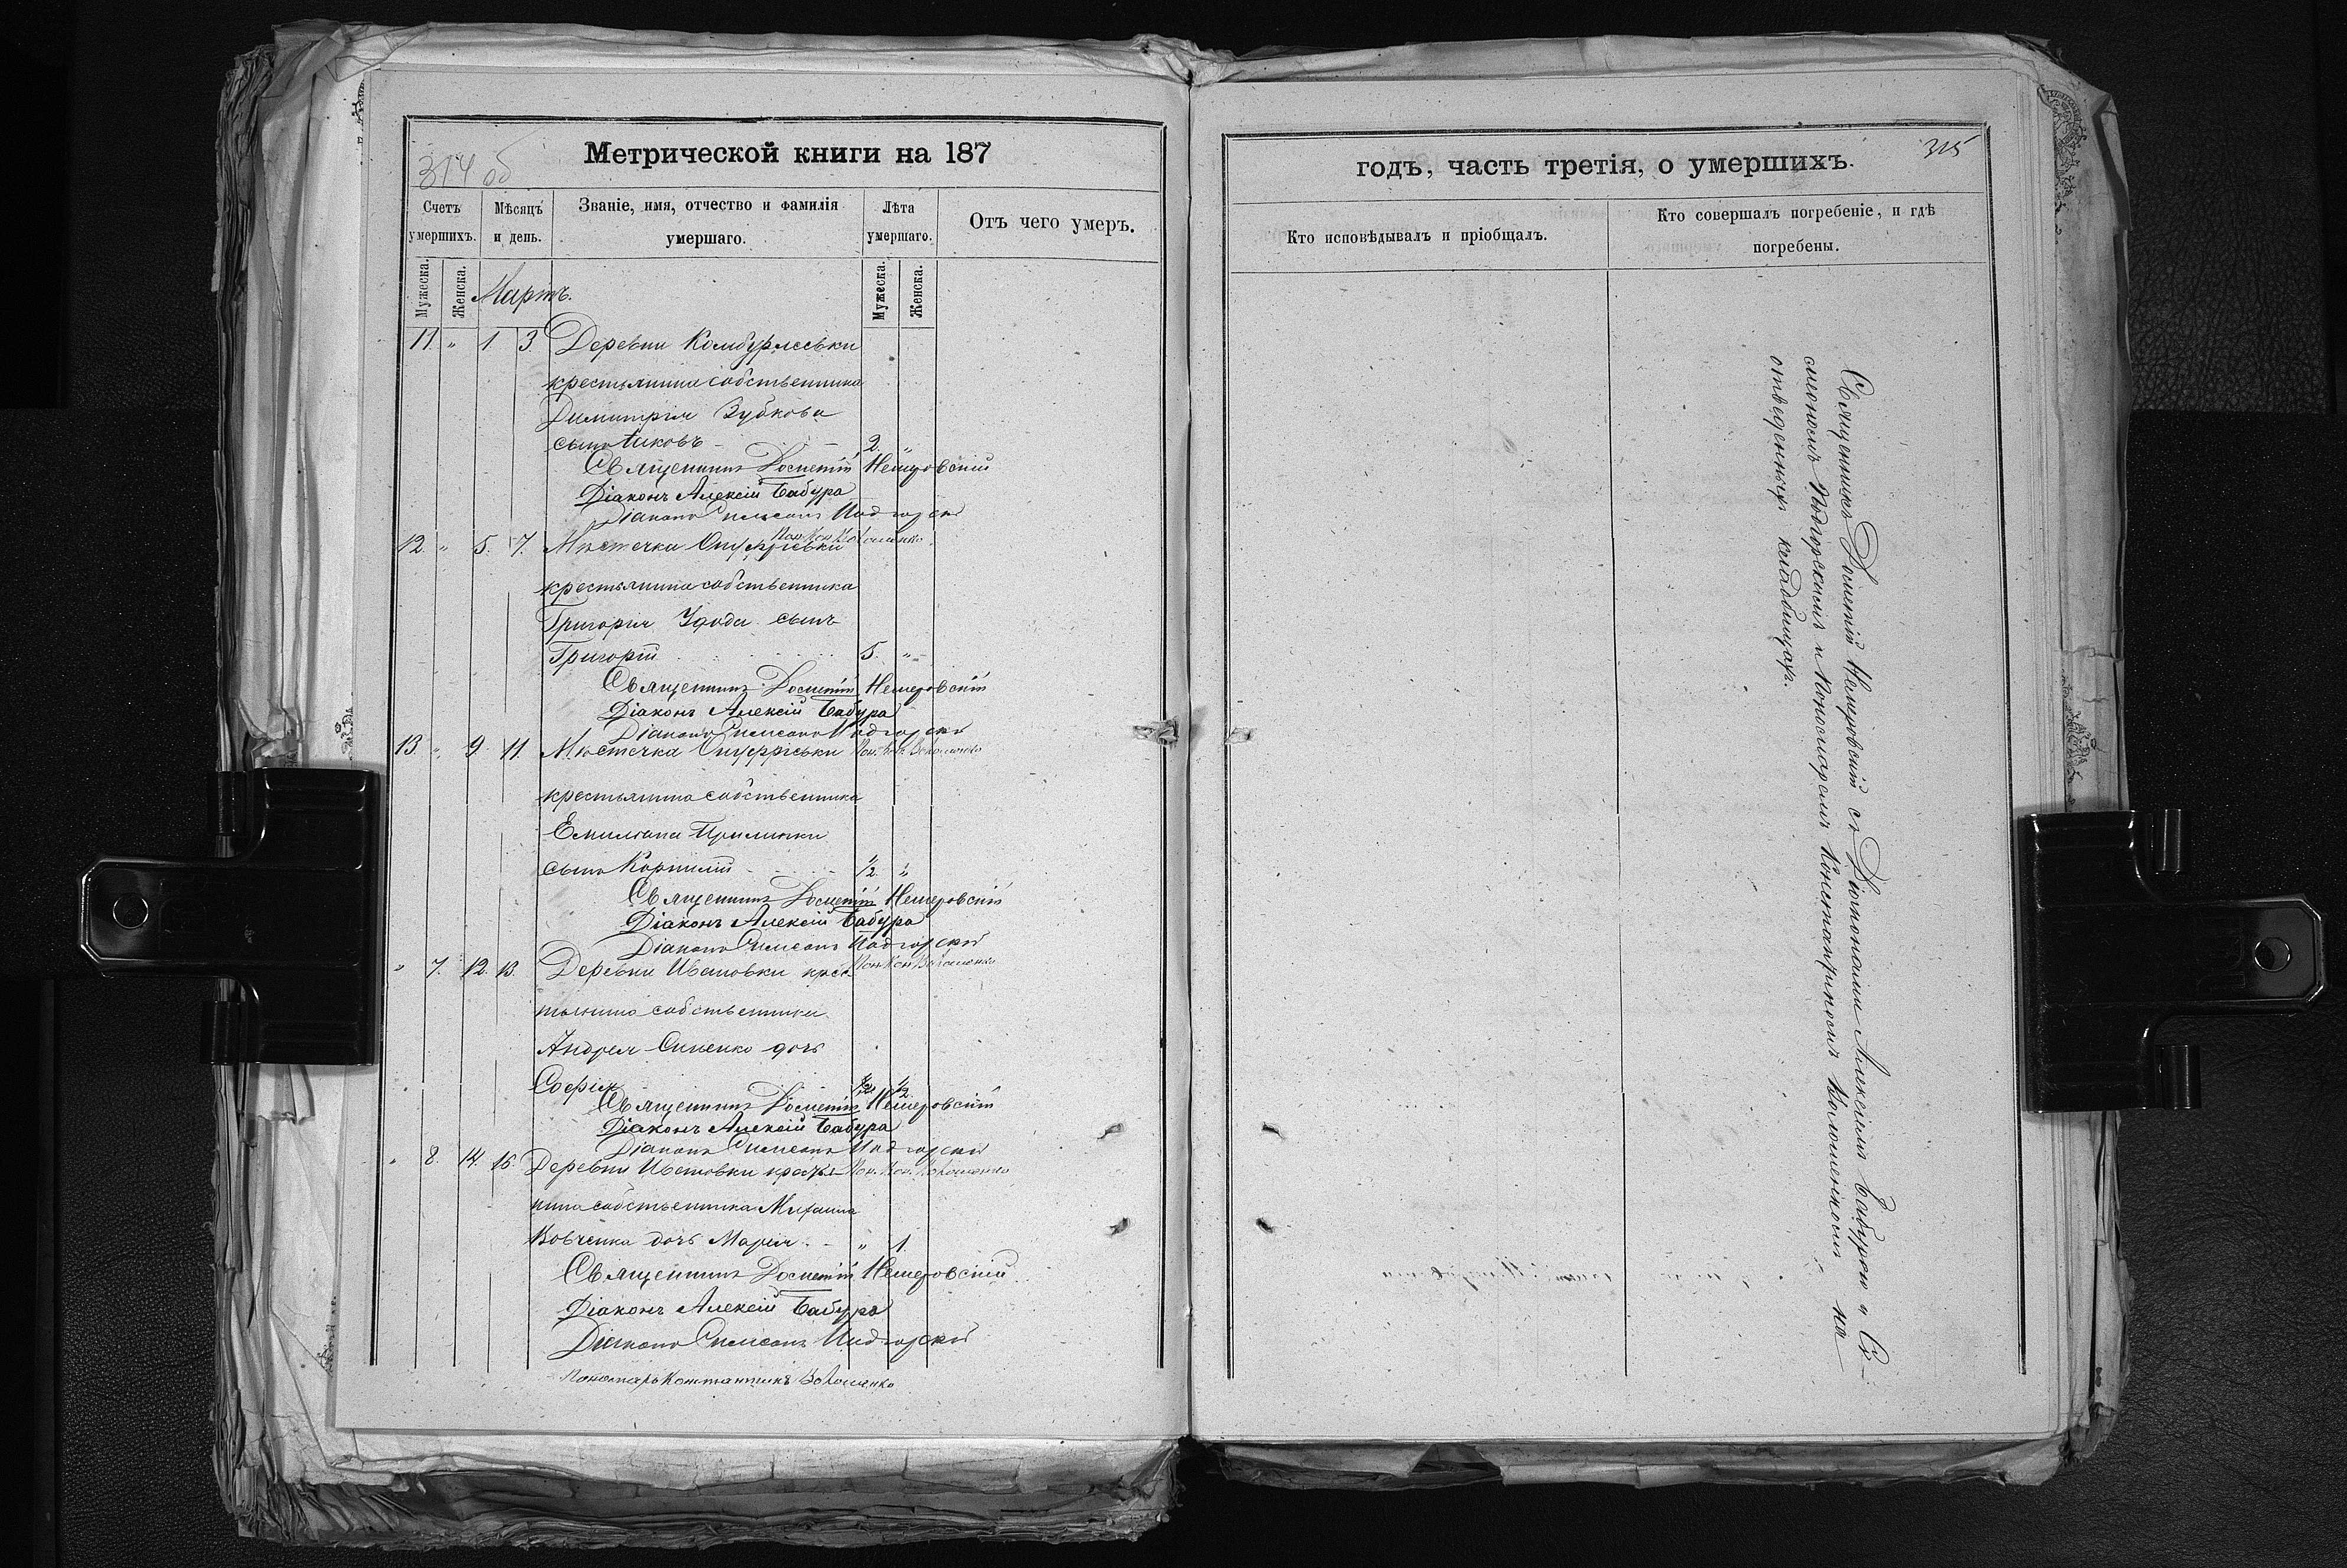 Метрической книги на 187
314 об
Счетъ умершихъ.
Мѣсяцъ и день.
Званіе, имя, отчество и фамилія умершаго.
Лѣта умершаго.
Отъ чего умеръ.
Мужеска.
Женска.
Мартъ.
Мужеска.
Женска.
11. " 1. 3. Деревни Камбурлеевки
крестьянина собственника
Димитрія Зубкова
сынъ Іаковъ 2. "
Священникъ Дометій Немеровскій
Діаконъ Алексій Бабура
Діаконъ Симеонъ Подгорскій
12. " 5. 7. Мѣстечка Онуфріевки
крестьянина собственника
Григорія Удода сынъ
Григорій 5. "
Священникъ Дометій Немеровскій
Діаконъ Алексій Бабура
Діаконъ Симеонъ Подгорскій
13. " 9. 11. Мѣстечка Онуфріевки
крестьянина собственника
Емиліана
сынъ Корнилій 1/2. "
Священникъ Дометій Немеровскій
Діаконъ Алексій Бабура
Діаконъ Симеонъ Подгорскій
" 7. 12. 13. Деревни Ивановки крес
тьянина собственника
Андрея дочь
Софія 1/2
Священникъ Дометій Немеровскій
Діаконъ Алексій Бабура
Діаконъ Симеонъ Подгорскій
" 8. 14. 16. Деревни Ивановки крестья
нина собственника Михаила
Вовченка дочь Марія " 1.
Священникъ Дометій Немеровскій
Діаконъ Алексій Бабура
Діаконъ Симеонъ Подгорскій
Пономарь Константинъ Волошенко
годъ, часть третія, о умершихъ.
315
Кто исповѣдывалъ и пріобщалъ.
Кто совершалъ погребеніе, и гдѣ погребены.
Священникъ Дометій Немеровскій съ Діаконами Алексіемъ Бабурою и Си-
меономъ Подгорскимъ и Пономаремъ Константиномъ Волошенкомъ на
отведенныхъ кладбищахъ.